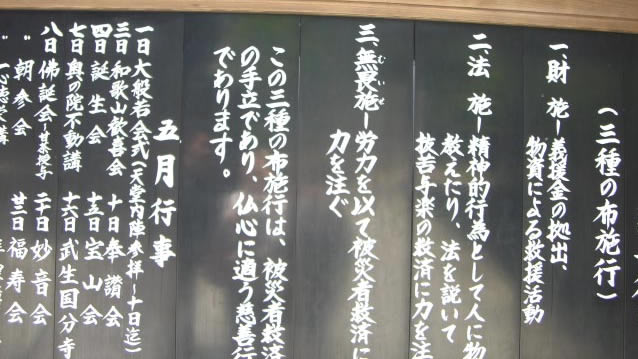 （三種の布施行）
一、財　施ー義援金の拠出、
物資による救援活動
二、法　施ー精神的行為として人に物
教えたり、法を説いて
抜苦与楽の救済に力を注
三、無畏施ー労力を以て被災者救済に
むいせ
力を注ぐ
この三種の布施行は、被災者救済
の手立であり、仏心に適う慈善行
であります。
五月行事
一日大般若会式（天堂内陣参拝ー十日迄）
三日和歌山歓喜会　十日奉讃会
四日誕生会　十五日宝山会
七日奥の院不動講　十六日武生国分寺
八日佛誕会ー甘茶授与　二十日妙音会
〃　朝参会　廿三日福寿会